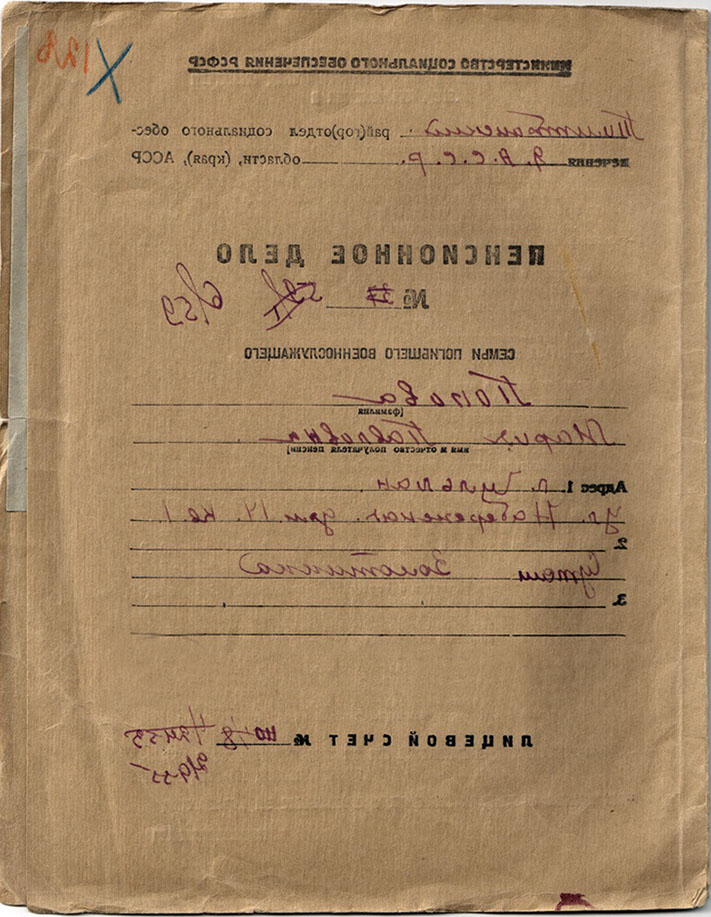 МИНИСТЕРСТВО СОЦИАЛЬНОГО ОБЕСПЕЧЕНИЯ РСФСР
Тимптонский рай(гор)отдел социального обес-
печения Я.А.С.С.Р. области, (края), АССР
ПЕНСИОННОЕ ДЕЛО
№
6/59
СЕМЬИ ПОГИБШЕГО ВОЕННОСЛУЖАЩЕГО
Попова
(фамилия
Мария Павловна
имя и отчество получателя пенсии)
Адрес 1. п. Чульман
ул. Набережная дом 14. кв. 1
2.
Золотинка
3.
ЛИЦЕВОЙ СЧЕТ №